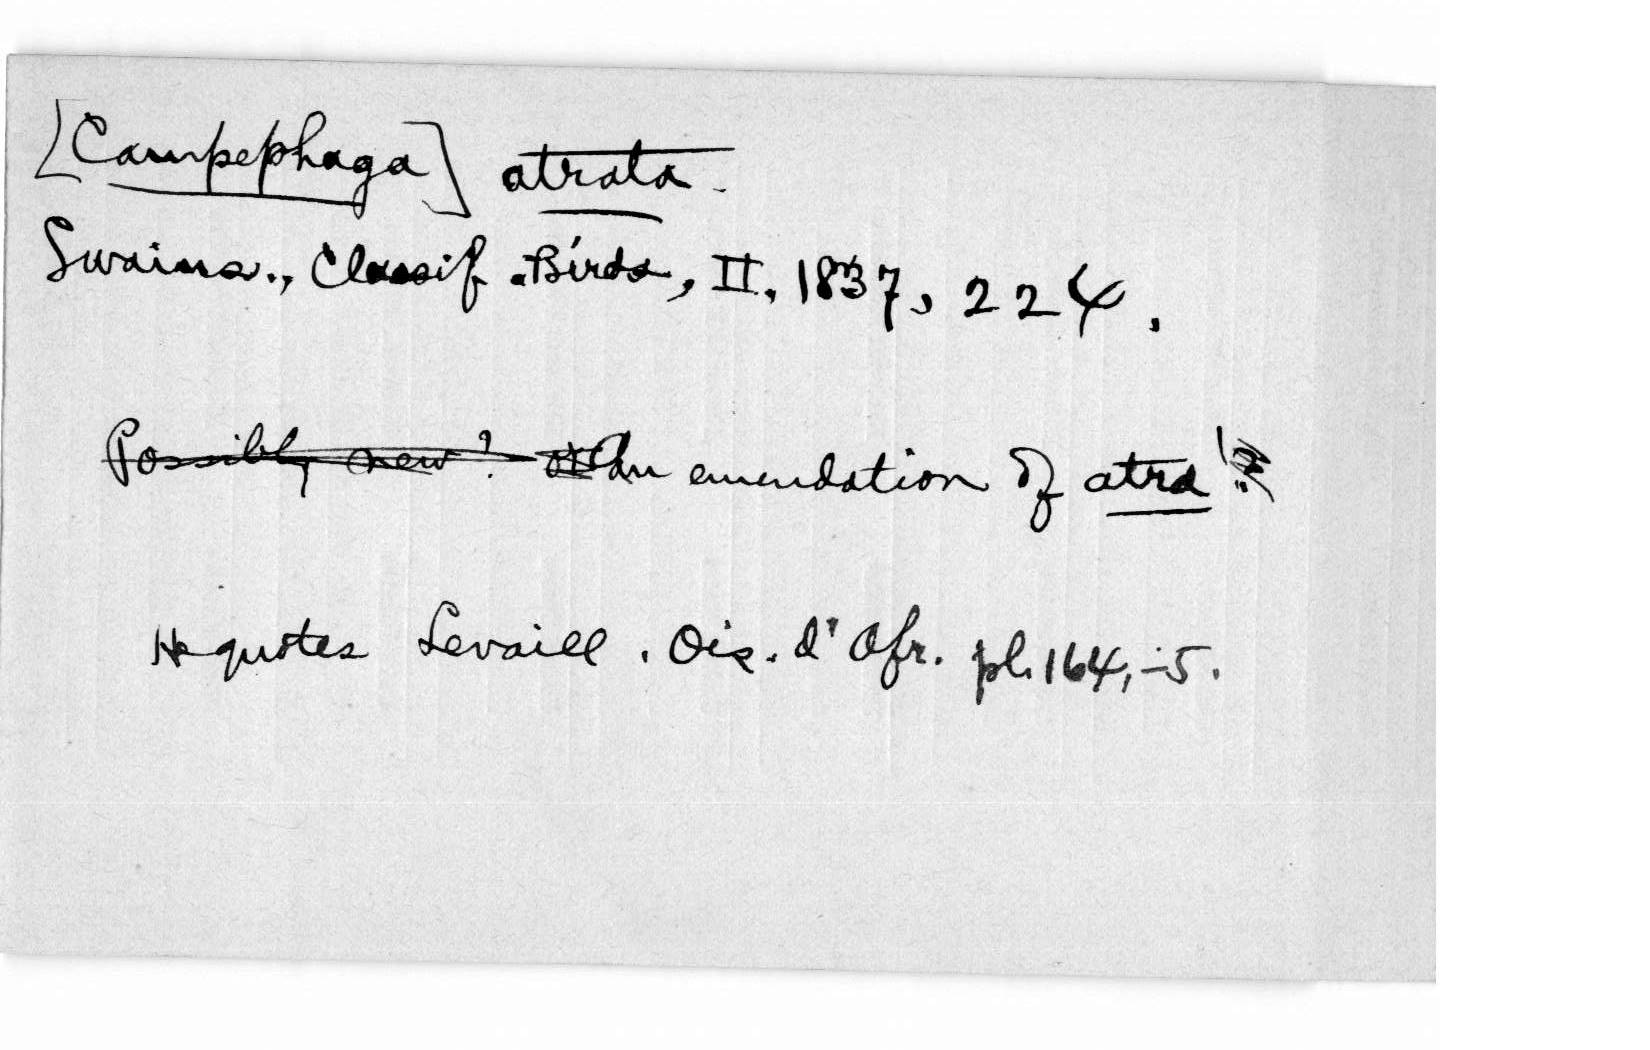 [Campephaga] atrata.
Swains., Classif. Birds, II, 1837, 224.
Possibly new? or An emendation of atra!
He quotes Levaill. Ois. d'Afr. pl. 164,-5.